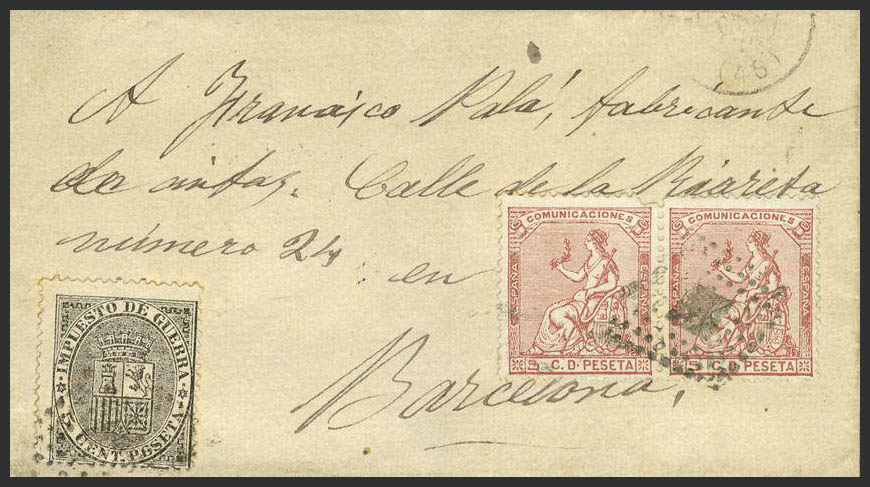 (46)
A Francisco Palá, fabricante
de cintas. Calle de la Riareta
número 24 en
Barcelona,
COMUNICACIONES COMUNICACIONES
ESPAÑA ESPAÑA
5 C. D. PESETA 5 C. D. PESETA
IMPUESTO DE GUERRA
5 CENT. PESETA